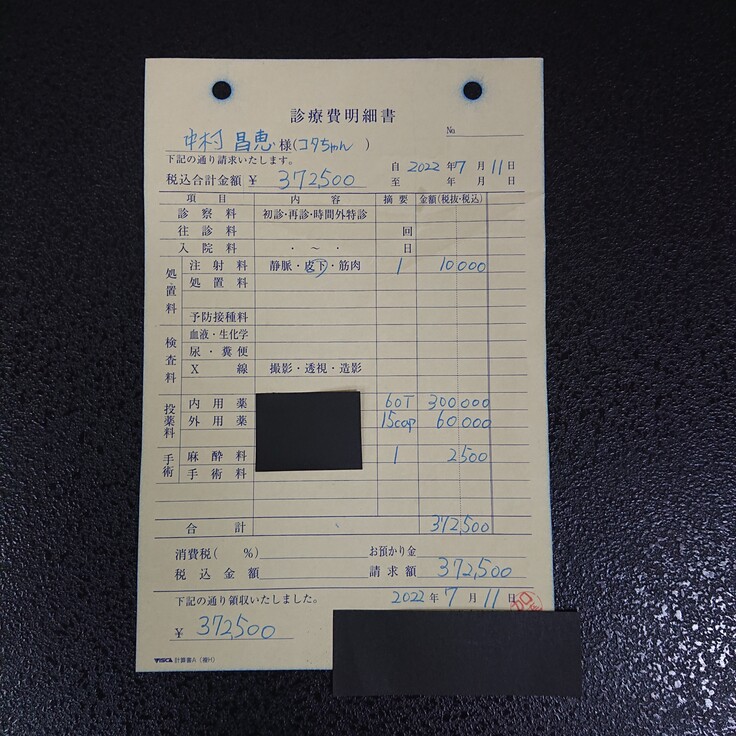 診療費明細書
No.
中村 昌恵 様(コタちゃん )
下記の通り請求いたします。
自 2022 年 7 月 11 日
税込合計金額 ¥ 372,500
至 年 月 日
項 目 内 容 摘 要 金額(税抜・税込)
診 察 料 初診・再診・時間外特診
往 診 料 回
入 院 料 ・ ~ ・ 日
処置料
注 射 料 静脈・皮下・筋肉 1 10,000
処 置 料
予防接種料
検査料
血液・生化学
尿・糞便
X 線 撮影・透視・造影
投薬料
内 用 薬 60T 300,000
外 用 薬 15cap 60,000
手術
麻 酔 料 1 2,500
手 術 料
合 計 372,500
消費税( %) お預かり金
税 込 金 額 請 求 額 372,500
下記の通り領収いたしました。 2022 年 7 月 11 日
¥ 372,500
計算書A(横H)